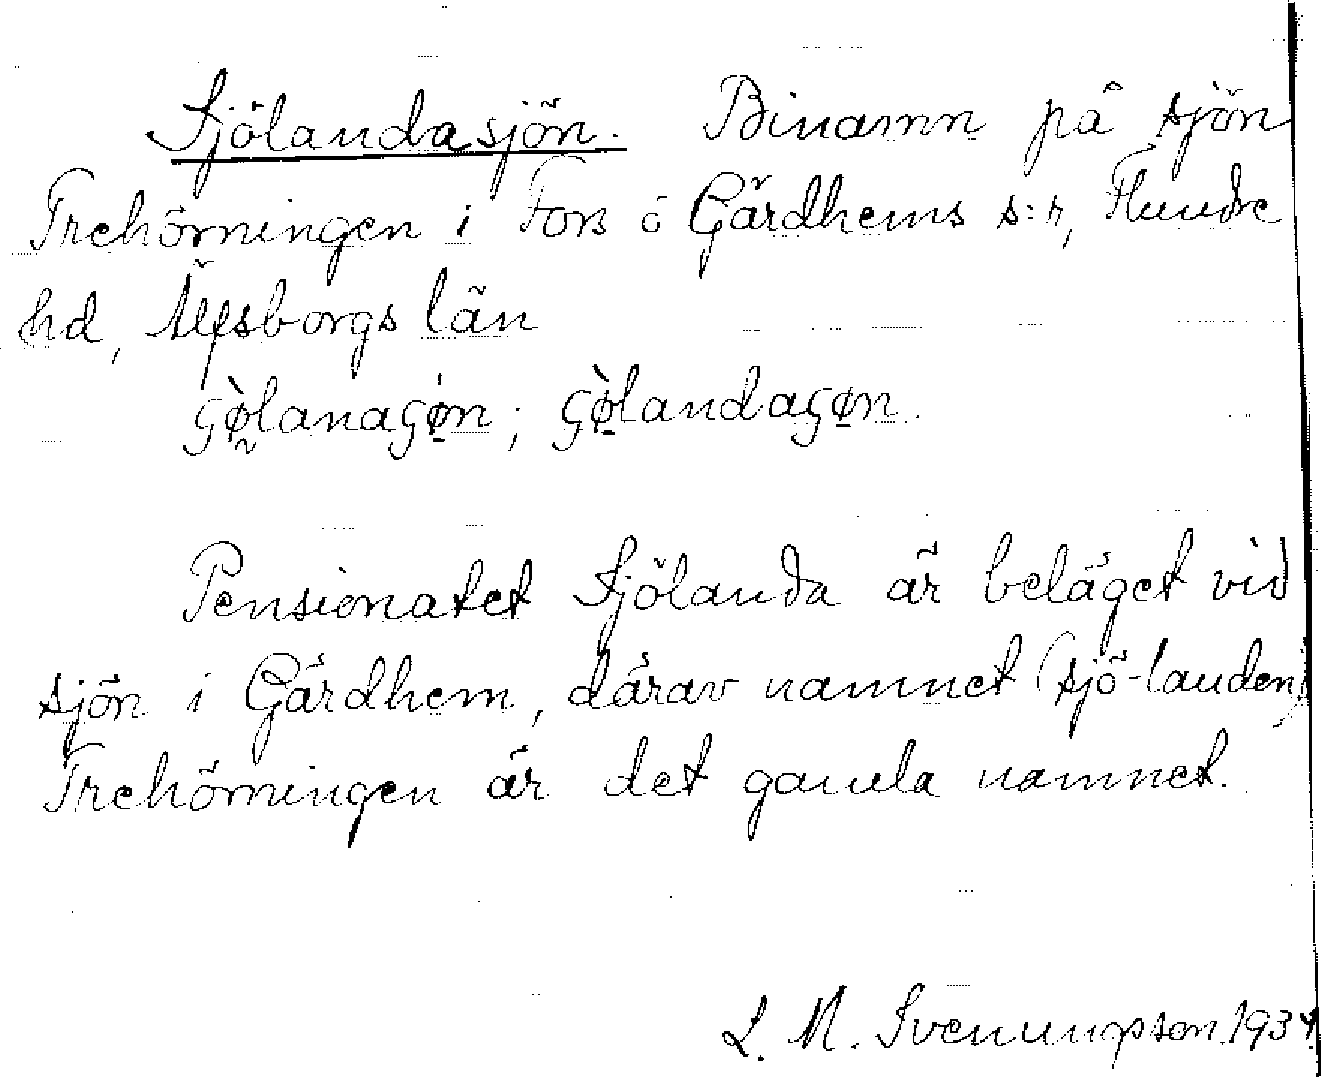 Sjölandasjön. Binamn på sjön
Trehörningen i Fors o Gärdhems s:r, Flundre
hd, Älfsborgs län
ʂø̀lanaʂø̀n; ʂø̀landaʂøn.
Pensionatet Sjölanda är beläget vid
sjön i Gärdhem, därav namnet (sjö-landen)
Trehörningen är det gamla namnet.
L. M. Svenungsson.